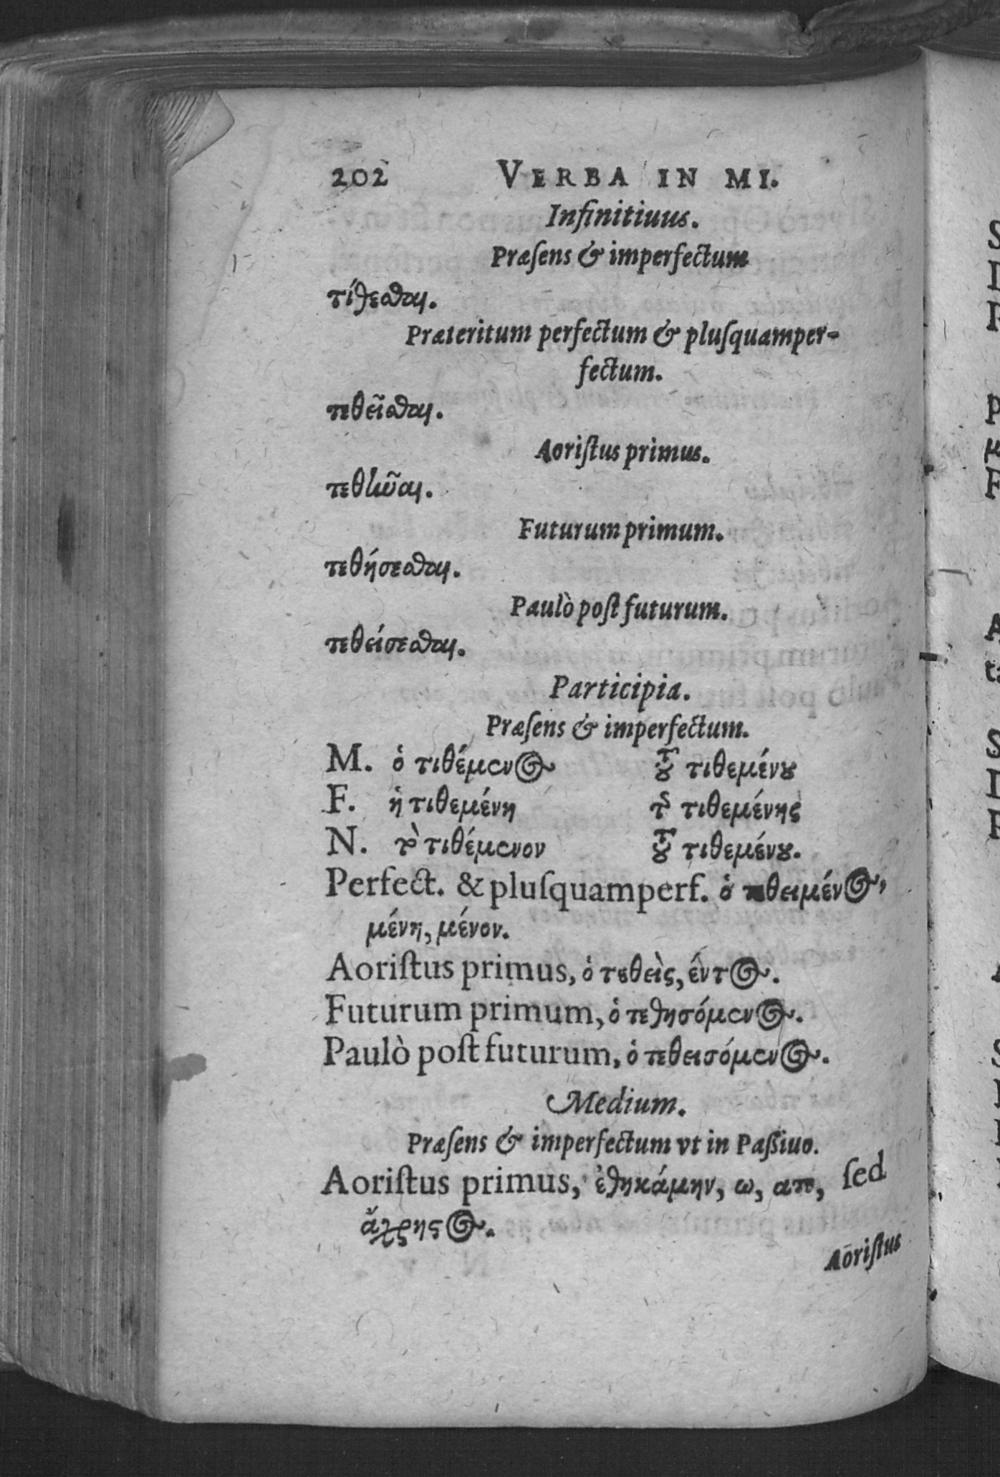 202 VERBA IN MI.
Infinitiuus.
Præsens & imperfectum
τίθεσθαι.
Præteritum perfectum & plusquamper-
fectum.
τεθεῖσθαι.
Aoristus primus.
τεθῆναι.
Futurum primum.
τεθήσεσθαι.
Paulò post futurum.
τεθείσεσθαι.
Participia.
Præsens & imperfectum.
M. ὁ τιθέμενος τοῦ τιθεμένου
F. ἡ τιθεμένη τῆς τιθεμένης
N. τὸ τιθέμενον τοῦ τιθεμένου.
Perfect. & plusquamperf. ὁ τεθειμένος,
μένη, μένον.
Aoristus primus, ὁ τεθεὶς, έντος.
Futurum primum, ὁ τεθησόμενος.
Paulò post futurum, ὁ τεθεισόμενος.
Medium.
Præsens & imperfectum vt in Passiuo.
Aoristus primus, ἐθηκάμην, ω, ατο, sed
ἄχρηστος.
Aoristus